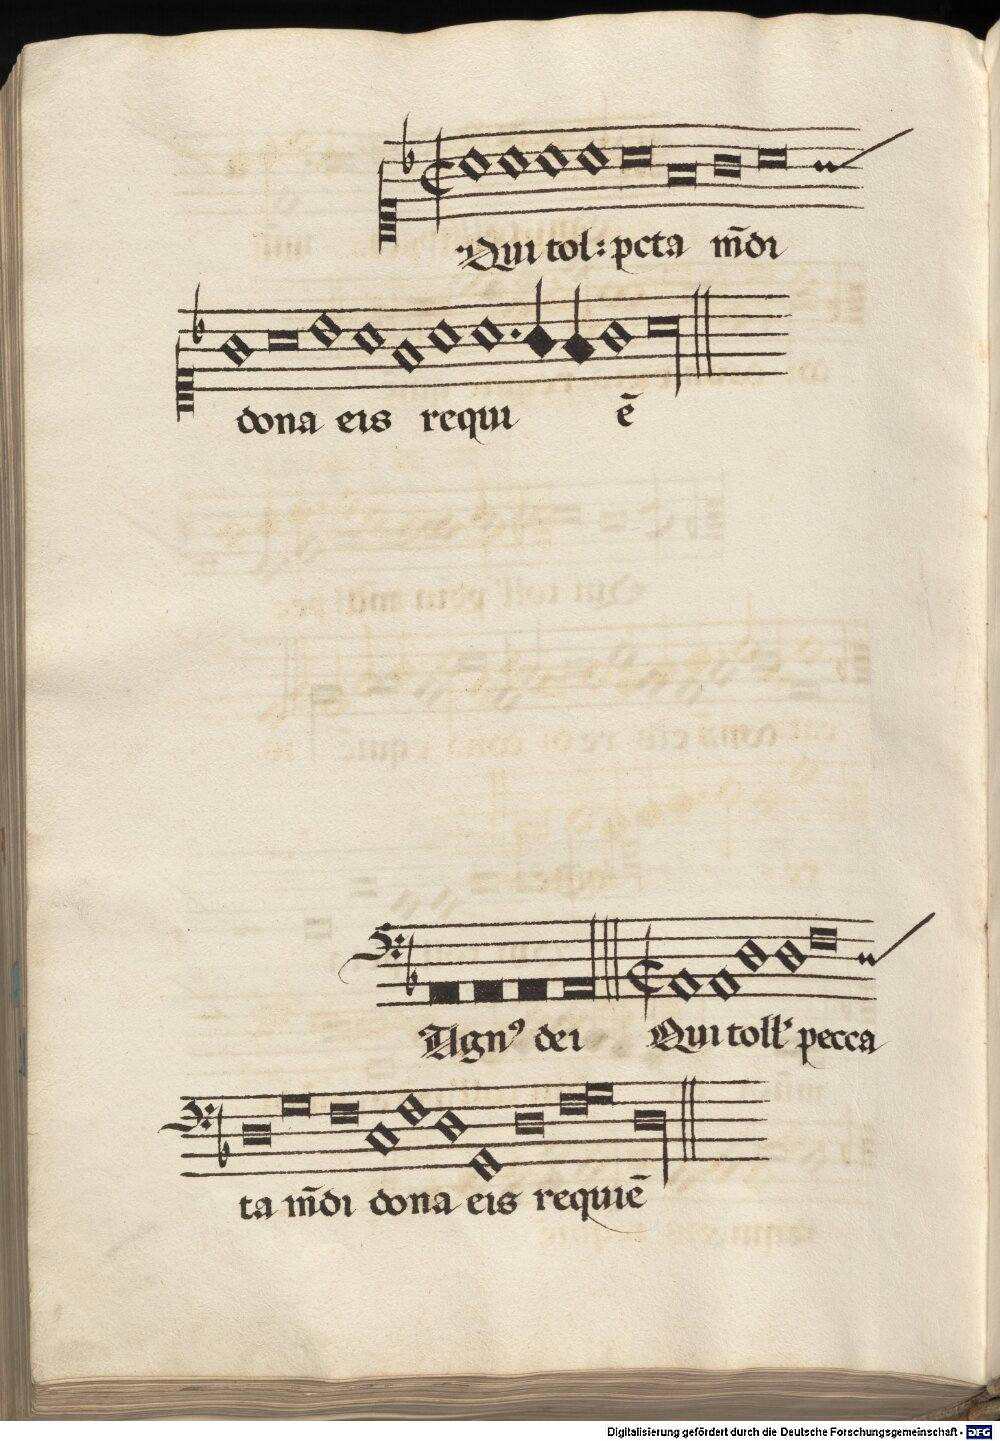 Qui tol: pcta m̄di
dona eis requi ē
Agnꝰ dei Qui toll' pecca
ta m̄di dona eis requiē
Digitalisierung gefördert durch die Deutsche Forschungsgemeinschaft - DFG